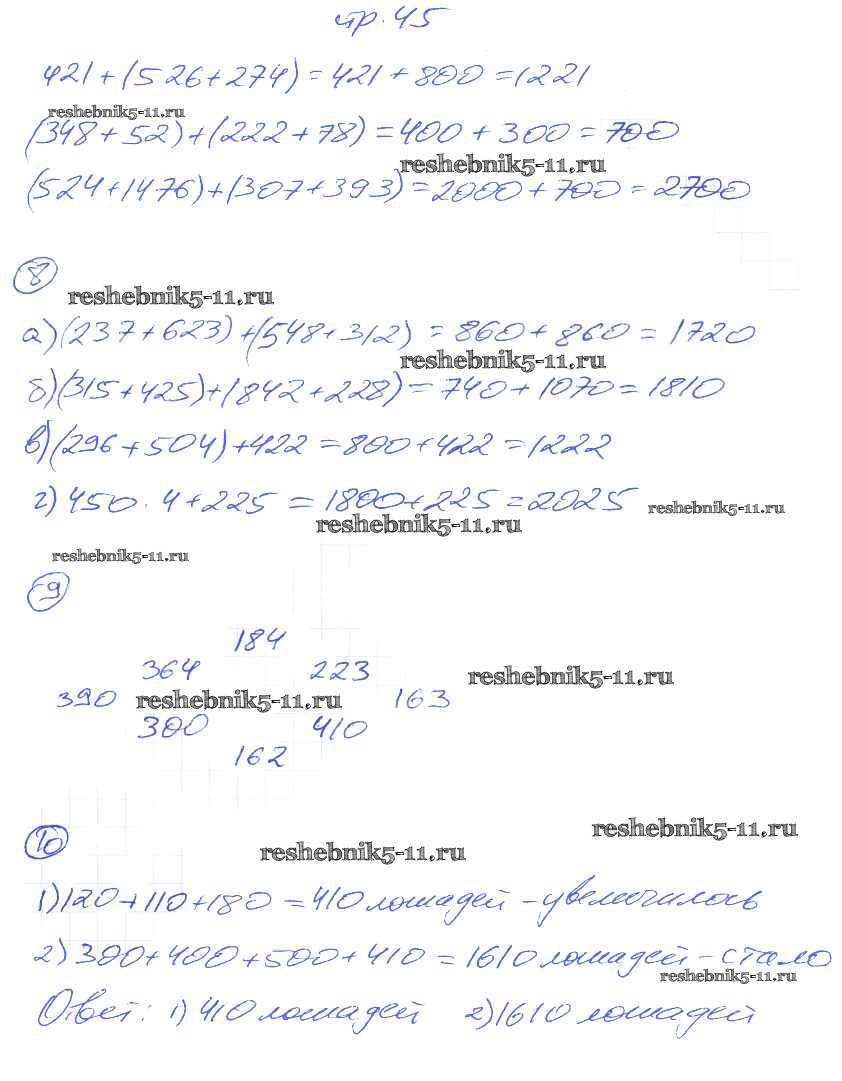 стр. 45
421+(526+274)=421+800=1221
reshebnik5-11.ru
(348+52)+(222+78)=400+300=700
reshebnik5-11.ru
(524+1476)+(307+393)=2000+700=2700
8
reshebnik5-11.ru
а)(237+623)+(548+312)=860+860=1720
reshebnik5-11.ru
б)(315+425)+(842+228)=740+1070=1810
в)(296+504)+422=800+422=1222
г)450·4+225=1800+225=2025
reshebnik5-11.ru
reshebnik5-11.ru
reshebnik5-11.ru
9
184
364 223
reshebnik5-11.ru
390 reshebnik5-11.ru 163
300 410
162
reshebnik5-11.ru
10
reshebnik5-11.ru
1)120+110+180=410 лошадей-увеличилось
2)300+400+500+410=1610 лошадей-стало
reshebnik5-11.ru
Ответ: 1)410 лошадей 2)1610 лошадей